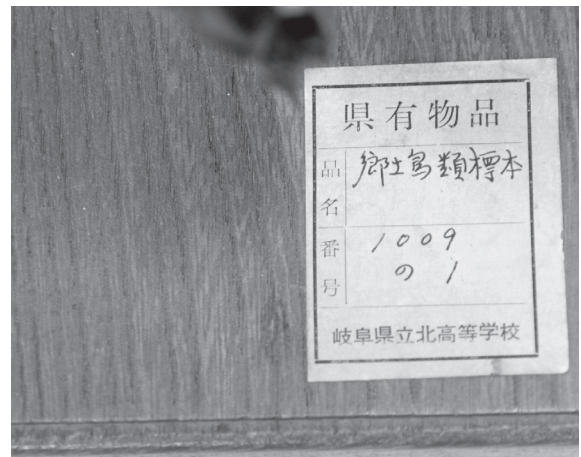 県有物品
品名 郷土鳥類標本
番号 1009
の1
岐阜県立北高等学校